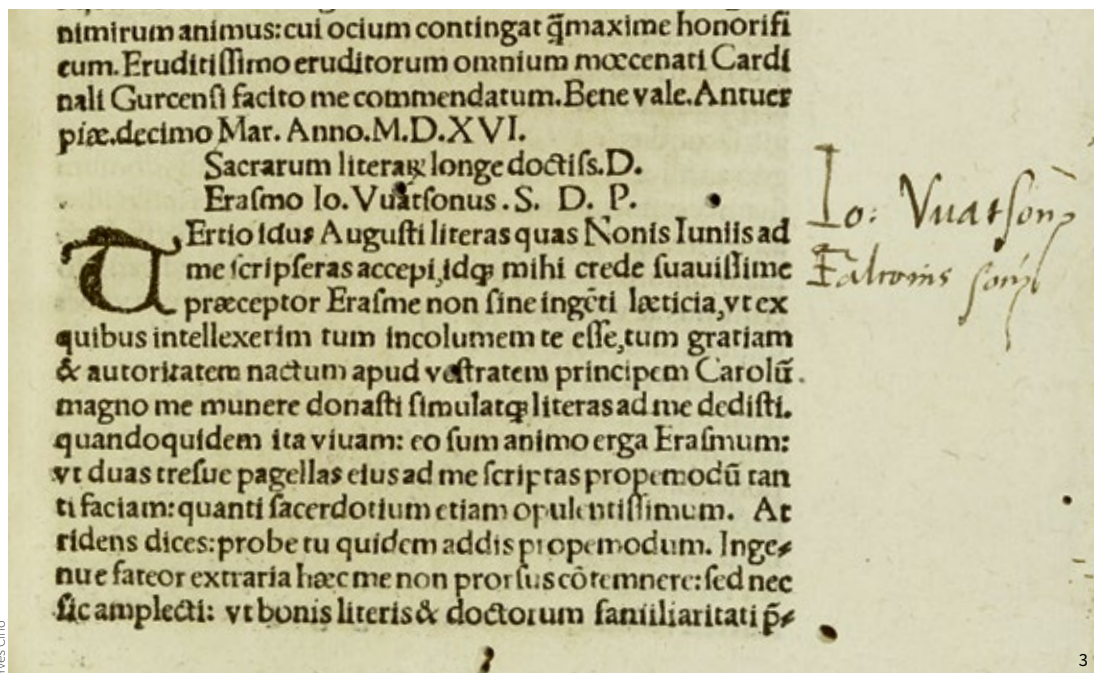 nimirum animus:cui ocium contingat q̃maxime honorifi
cum.Eruditiſſimo eruditorum omnium mœcenati Cardi
nali Gurcenſi facito me commendatum.Bene vale.Antuer
piæ.decimo Mar. Anno.M.D.XVI.
Sacrarum literaꝝ longe doctiſs.D.
Eraſmo Io. Vuatſonus . S. D. P.
TErtio idus Auguſti literas quas Nonis Iuniis ad
me ſcripſeras accepi,idqꝫ mihi crede ſuauiſſime
præceptor Eraſme non ſine ingẽti læticia,vt ex
quibus intellexerim tum incolumem te eſſe,tum gratiam
& autoritatem nactum apud veſtratem principem Carolũ.
magno me munere donaſti ſimulatqꝫ literas ad me dediſti.
quandoquidem ita viuam: eo ſum animo erga Eraſmum:
vt duas treſue pagellas eius ad me ſcriptas propemodũ tan
ti faciam:quanti ſacerdotium etiam opulentiſſimum. At
ridens dices:probe tu quidem addis propemodum. Inge⸗
nue fateor extraria hæc me non prorſus cõtemnere:ſed nec
ſic amplecti: vt bonis literis & doctorum familiaritati p̃⸗
Io: Vuatſon
3